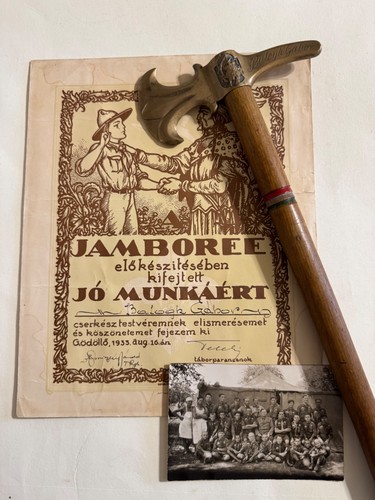 JAMBOREE
előkészítésében
kifejtett
JÓ MUNKÁÉRT
Balogh Gábor
cserkésztestvéremnek elismerésemet
és köszönetemet fejezem ki
Gödöllő, 1933. aug. 16.án
táborparancsnok